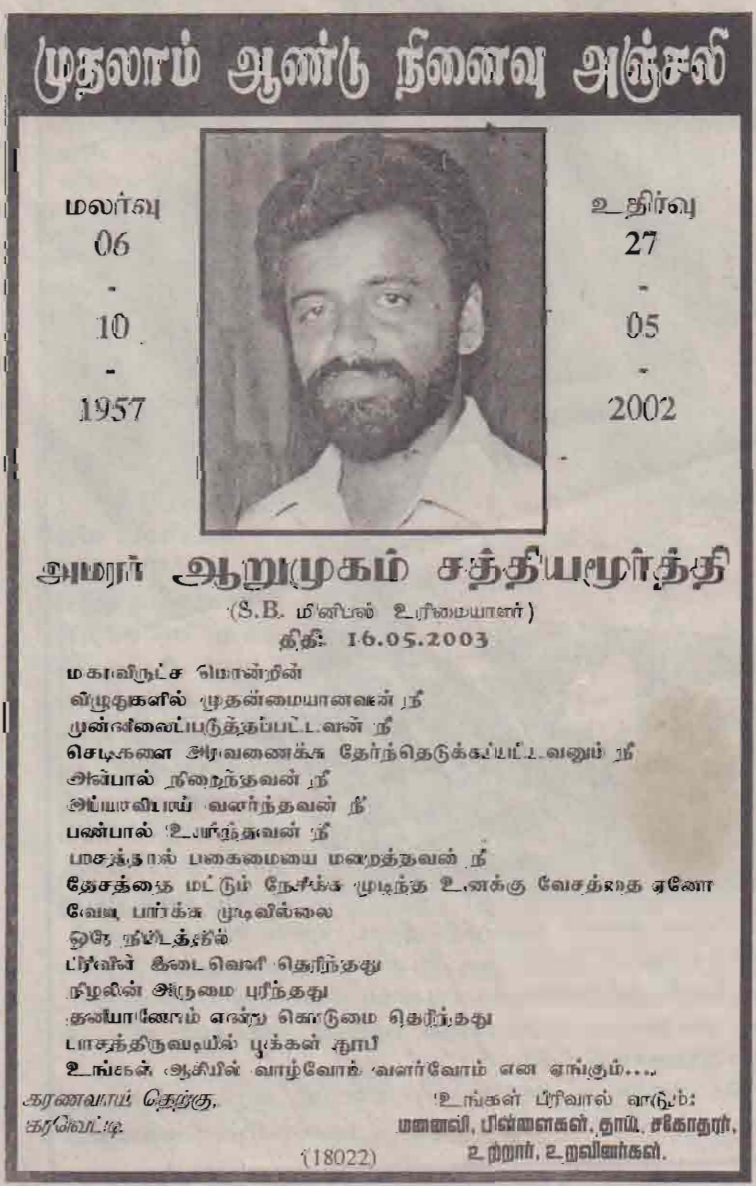 முதலாம் ஆண்டு நினைவு அஞ்சலி
மலர்வு
06
-
10
-
1957
உதிர்வு
27
-
05
-
2002
அமரர் ஆறுமுகம் சத்தியமூர்த்தி
(S.B. மினிபஸ் உரிமையாளர்)
திதி: 16.05.2003
மகாவிருட்ச மொன்றின்
விழுதுகளில் முதன்மையானவன் நீ
முன்னிலைப்படுத்தப்பட்டவன் நீ
செடிகளை அரவணைக்க தேர்ந்தெடுக்கப்பட்டவனும் நீ
அன்பால் நிறைந்தவன் நீ
வளர்ந்தவன் நீ
பண்பால் உயர்ந்தவன் நீ
பாசத்தால் பகைமையை மறைத்தவன் நீ
தேசத்தை மட்டும் நேசிக்க முடிந்த உனக்கு வேசத்தை ஏனோ
பார்க்க முடியவில்லை
ஒரே நிமிடத்தில்
பிரிவின் இடைவெளி தெரிந்தது
நிழலின் அருமை புரிந்தது
தனியானோம் என்ற கொடுமை தெரிந்தது
பாசத்திருவடியில் பூக்கள் தூபி
உங்கள் ஆசியில் வாழ்வோம் வளர்வோம் என ஏங்கும்....
கரணவாய் தெற்கு,
கரவெட்டி.
உங்கள் பிரிவால் வாடும்:
மனைவி, பிள்ளைகள், தாய், சகோதரர்,
உற்றார், உறவினர்கள்.
(18022)